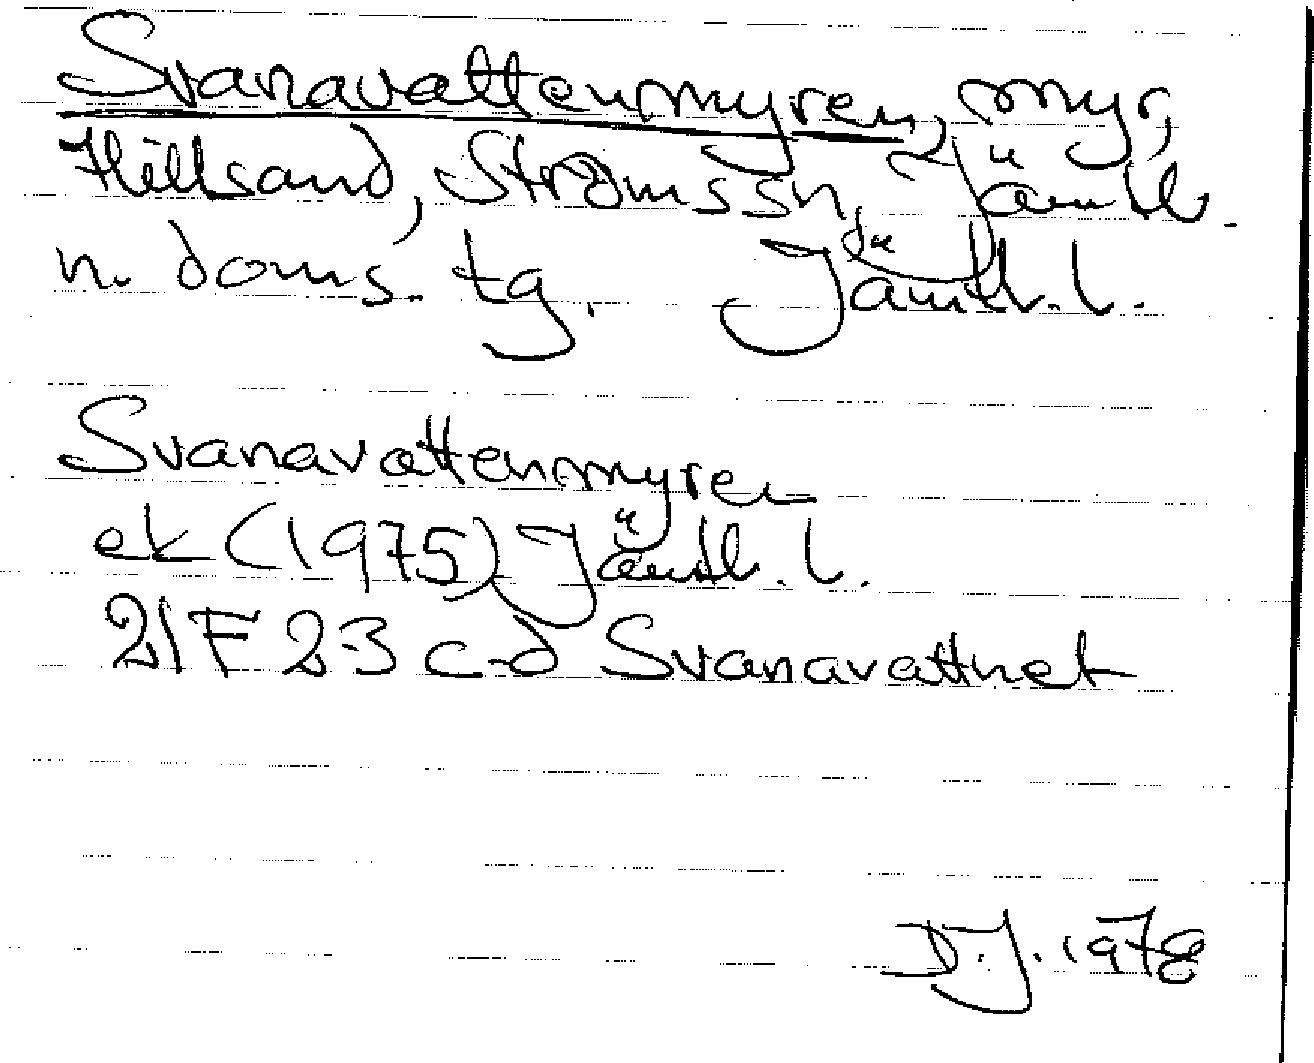 Svanavattenmyren, myr,
Hillsand, Ströms sn, Jämtl.
n. doms. tg. Jämtl. l.
Svanavattenmyren
ek (1975) Jämtl. l.
21F 2-3 c-d Svanavattnet
D.J. 1978